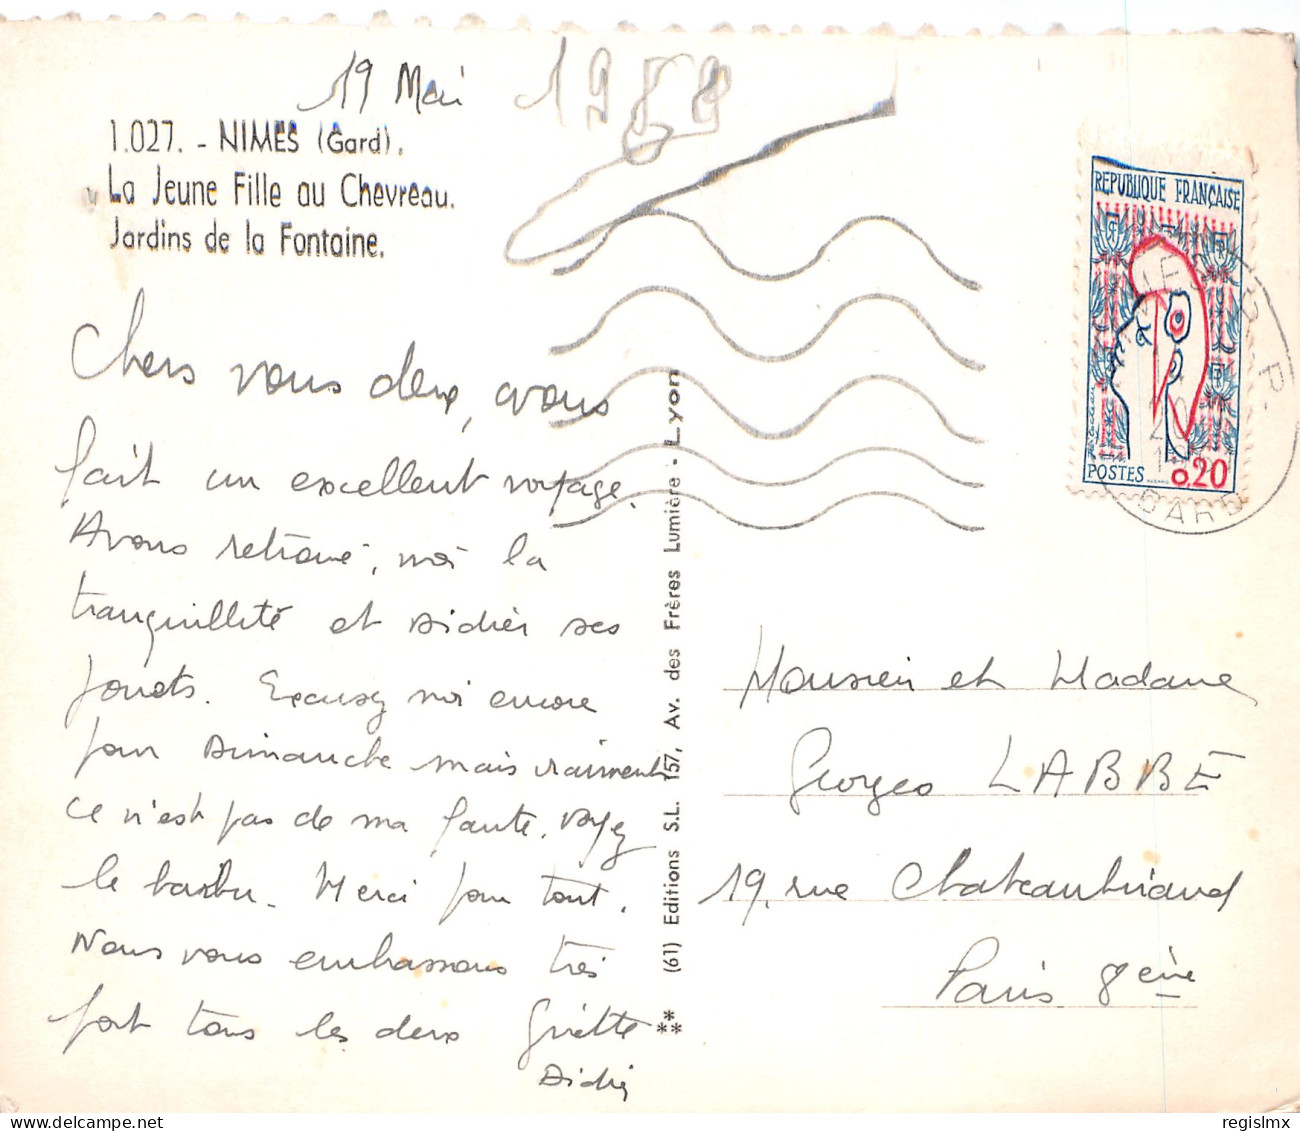 19 Mai 19
1.027. - NIMES (Gard).
La Jeune Fille au Chevreau.
Jardins de la Fontaine.
Chers vous deux, avons
fait un excellent voyage.
Avons retrouvé, moi la
tranquillité et Didier ses
jouets. Excusez moi encore
pour Dimanche mais vraiment
ce n'est pas de ma faute. Voyez
le barbu. Merci pour tout.
Nous vous embrassons très
fort tous les deux Ginette
Didier
** (61) Editions S.L. 157, Av. des Frères Lumière - Lyon
REPUBLIQUE FRANÇAISE
POSTES 0,20
GARD
Monsieur et Madame
Georges LABBÉ
19, rue Chateaubriand
Paris 8ème
regislmx